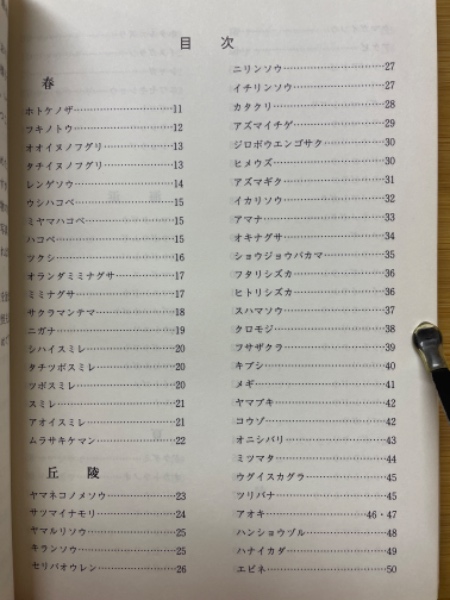 目 次
春
ホトケノザ……………………11
フキノトウ……………………12
オオイヌノフグリ……………13
タチイヌノフグリ……………13
レンゲソウ……………………14
ウシハコベ……………………15
ミヤマハコベ…………………15
ハコベ…………………………15
ツクシ…………………………16
オランダミミナグサ…………17
ミミナグサ……………………17
サクラマンテマ………………18
ニガナ…………………………19
シハイスミレ…………………20
タチツボスミレ………………20
ツボスミレ……………………20
スミレ…………………………21
アオイスミレ…………………21
ムラサキケマン………………22
丘 陵
ヤマネコノメソウ……………23
サツマイナモリ………………24
ヤマルリソウ…………………25
キランソウ……………………25
セリバオウレン………………26
ニリンソウ……………………27
イチリンソウ…………………27
カタクリ………………………28
アズマイチゲ…………………29
ジロボウエンゴサク…………30
ヒメウズ………………………30
アズマギク……………………31
イカリソウ……………………32
アマナ…………………………33
オキナグサ……………………34
ショウジョウバカマ…………35
フタリシズカ…………………36
ヒトリシズカ…………………36
スハマソウ……………………37
クロモジ………………………38
フサザクラ……………………39
キブシ…………………………40
メギ……………………………41
ヤマブキ………………………42
コウゾ…………………………42
オニシバリ……………………43
ミツマタ………………………44
ウグイスカグラ………………45
ツリバナ………………………45
アオキ……………………46・47
ハンショウヅル………………48
ハナイカダ……………………49
エビネ…………………………50